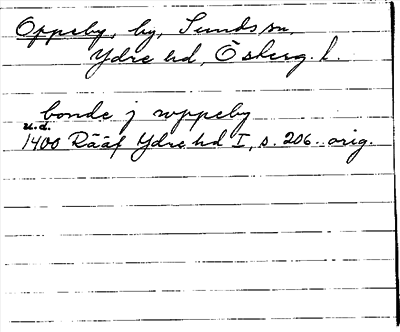 Oppeby, by, Sunds sn,
Ydre hd, Österg. l.
bonde j uppeby
u.d.
1400 Rääf Ydre hd I, s. 206. orig.